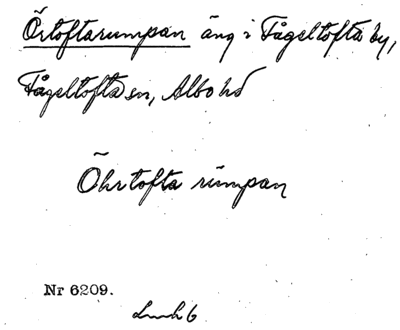 Örtoftarumpan äng i Fågeltofta by,
Fågeltofta sn, Albo hd
Öhrtofta rumpan
Nr 6209.